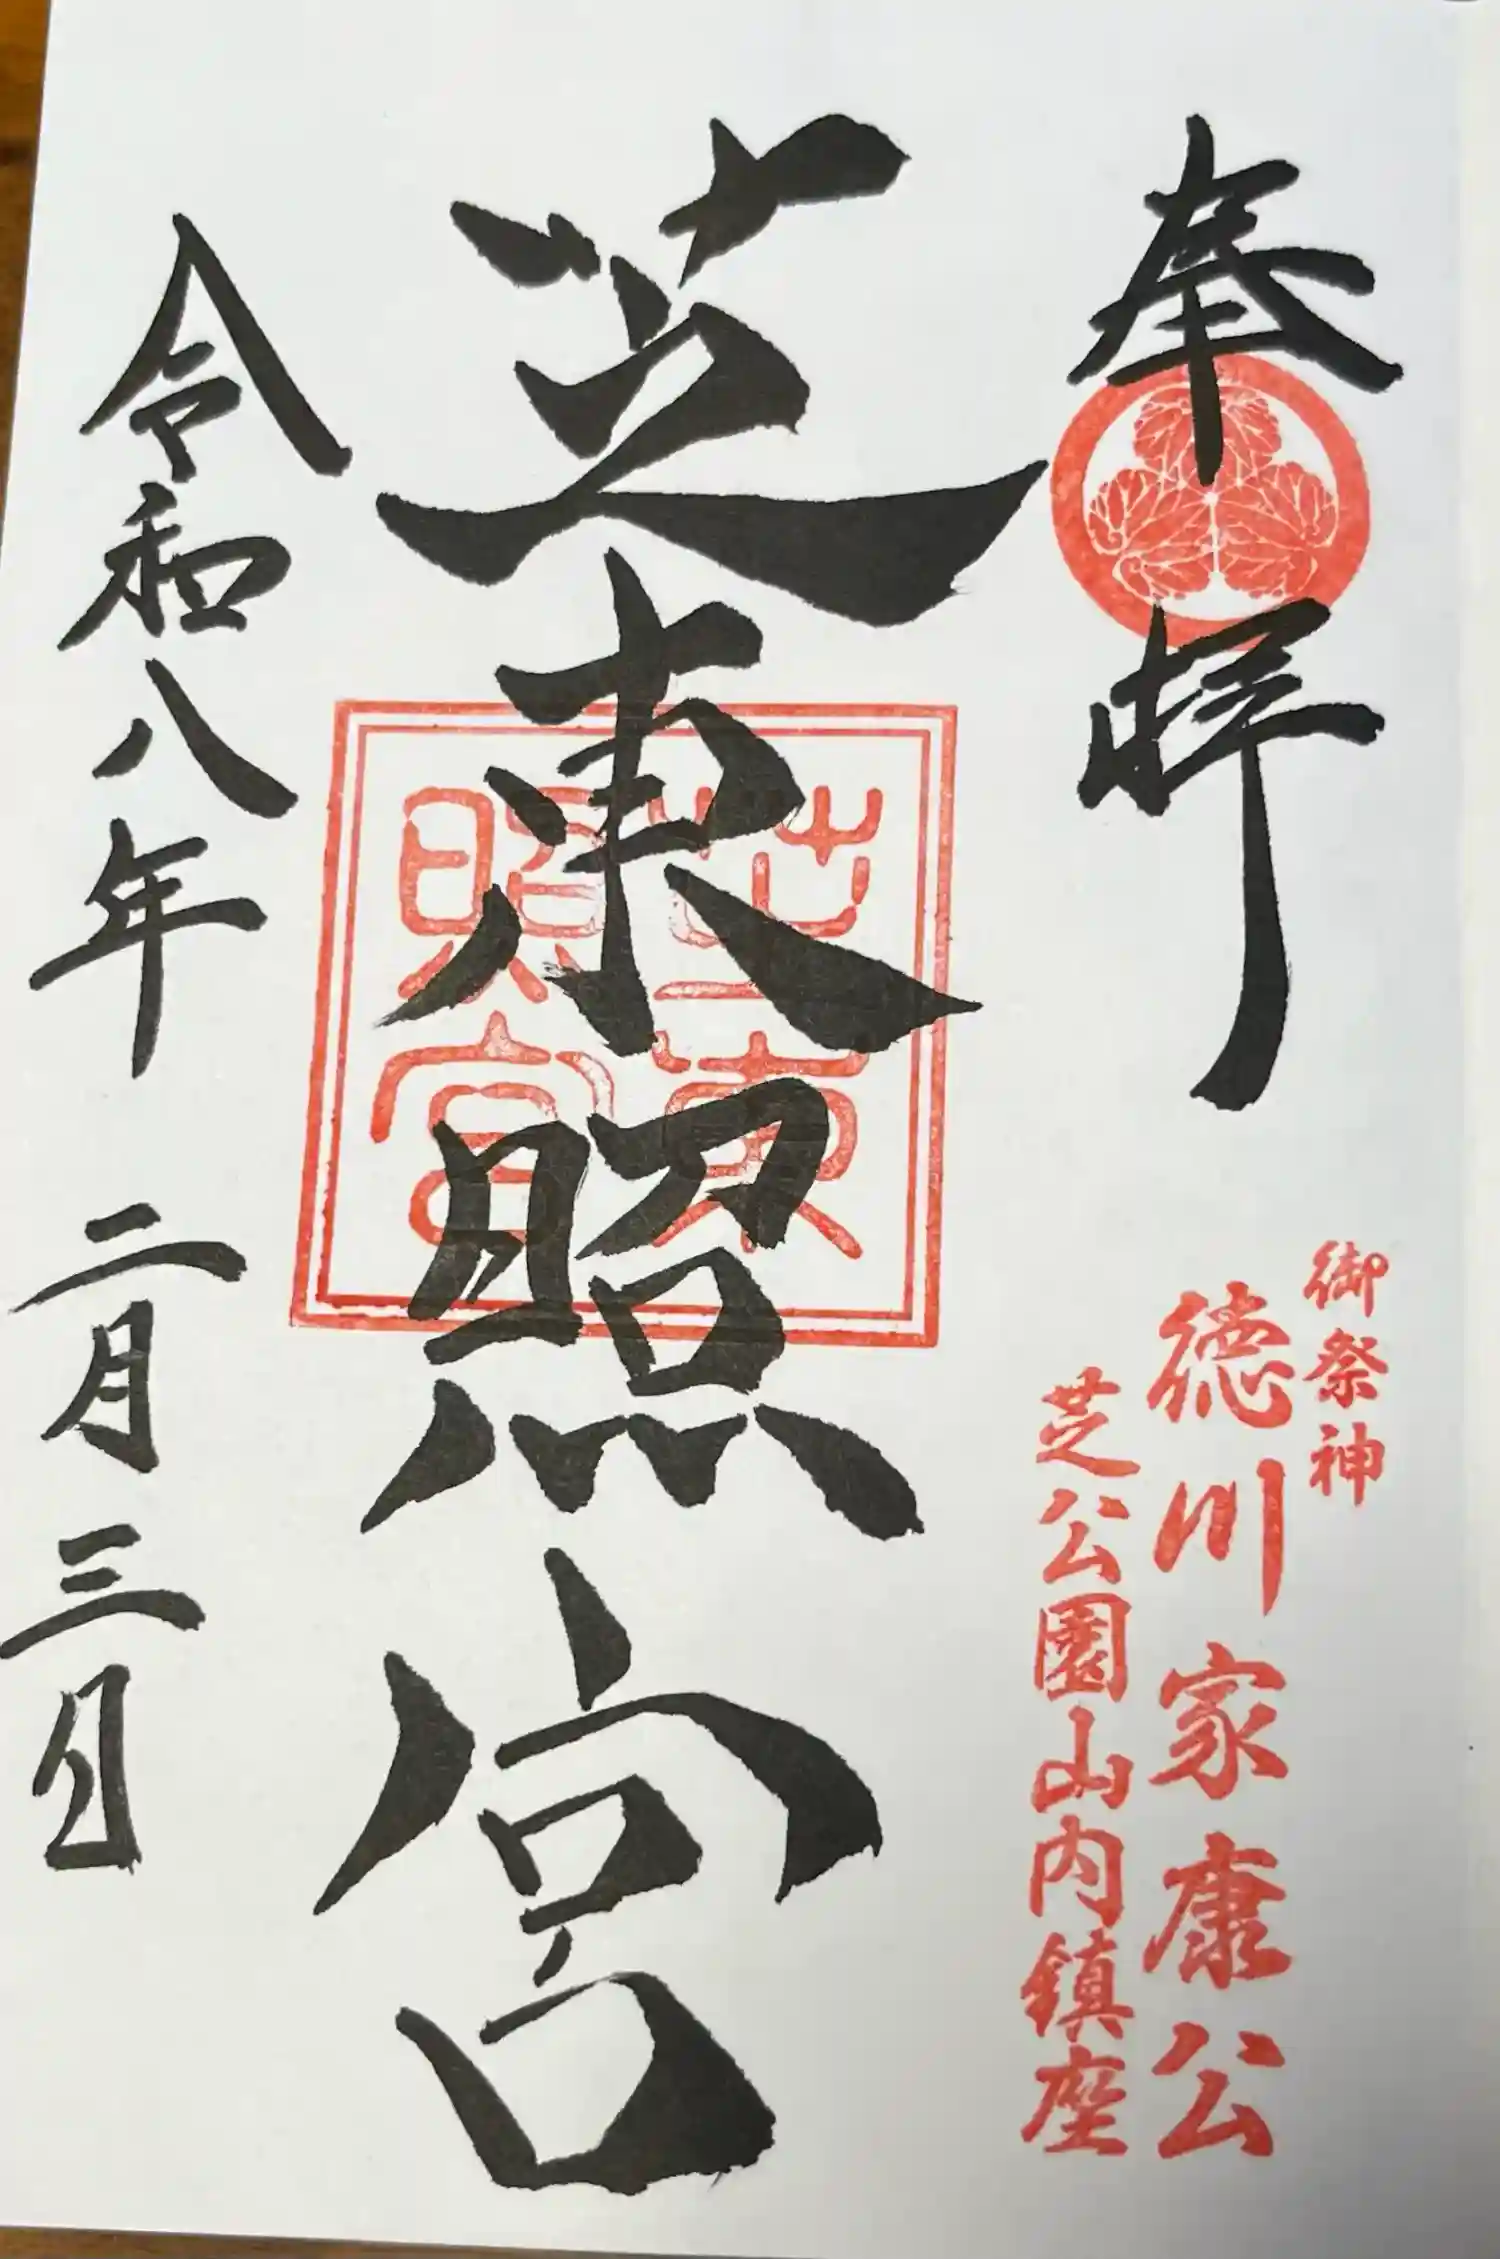 奉拝
御祭神
徳川家康公
芝公園山内鎮座
芝東照宮
芝東
照宮
令和八年 二月 三日